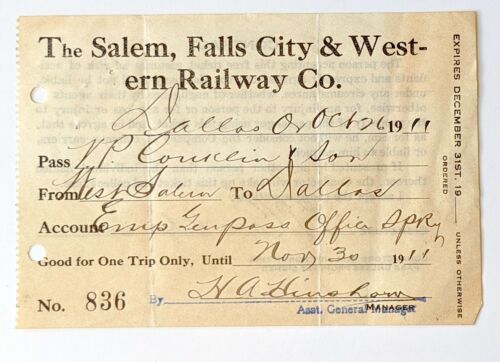 The Salem, Falls City & West-
ern Railway Co.
Dallas Or Oct 26 1911
Pass W.P. Conklin & Son
From West Salem To Dallas
Account Emp Genpass Office S P Ry
Good for One Trip Only, Until Nov 30 1911
No. 836 By H A Hinshaw
MANAGER
Asst. General Manager
EXPIRES DECEMBER 31ST, 19 — UNLESS OTHERWISE
ORDERED